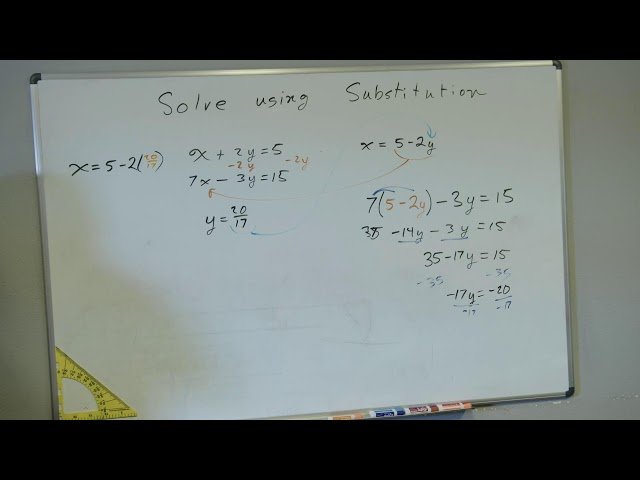 Solve using Substitution
x = 5 - 2(20/17)
x + 2y = 5
-2y -2y
7x - 3y = 15
y = 20/17
x = 5 - 2y
7(5 - 2y) - 3y = 15
35 - 14y - 3y = 15
35 - 17y = 15
-35 -35
-17y = -20
-17 -17